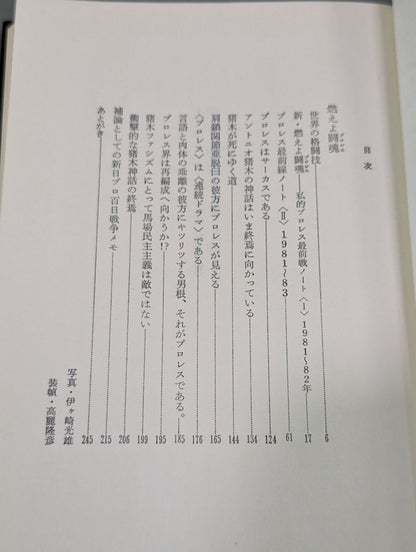 目次
燃えよ闘魂プロレス
世界の格闘技……6
新・燃えよ闘魂プロレス　私的プロレス最前戦ノート〈Ⅰ〉1981〜82年……17
プロレス最前線ノート〈Ⅱ〉1981〜83……61
プロレスはサーカスである……124
アントニオ猪木の神話はいま終焉に向かっている……134
猪木が死にゆく道……144
肩鎖関節亜脱臼の彼方にプロレスが見える……165
〈プロレス〉は〈連続ドラマ〉である……176
言語と肉体の乖離の彼方にキツリツする男根、それがプロレスである。……185
プロレス界は再編成へ向かうか!?……195
猪木ファシズムにとって馬場民主主義は敵ではない……199
衝撃的な猪木神話の終焉……206
補論としての新日プロ百日戦争メモ……215
あとがき……245
写真・伊ヶ崎光雄
装幀・高麗隆彦